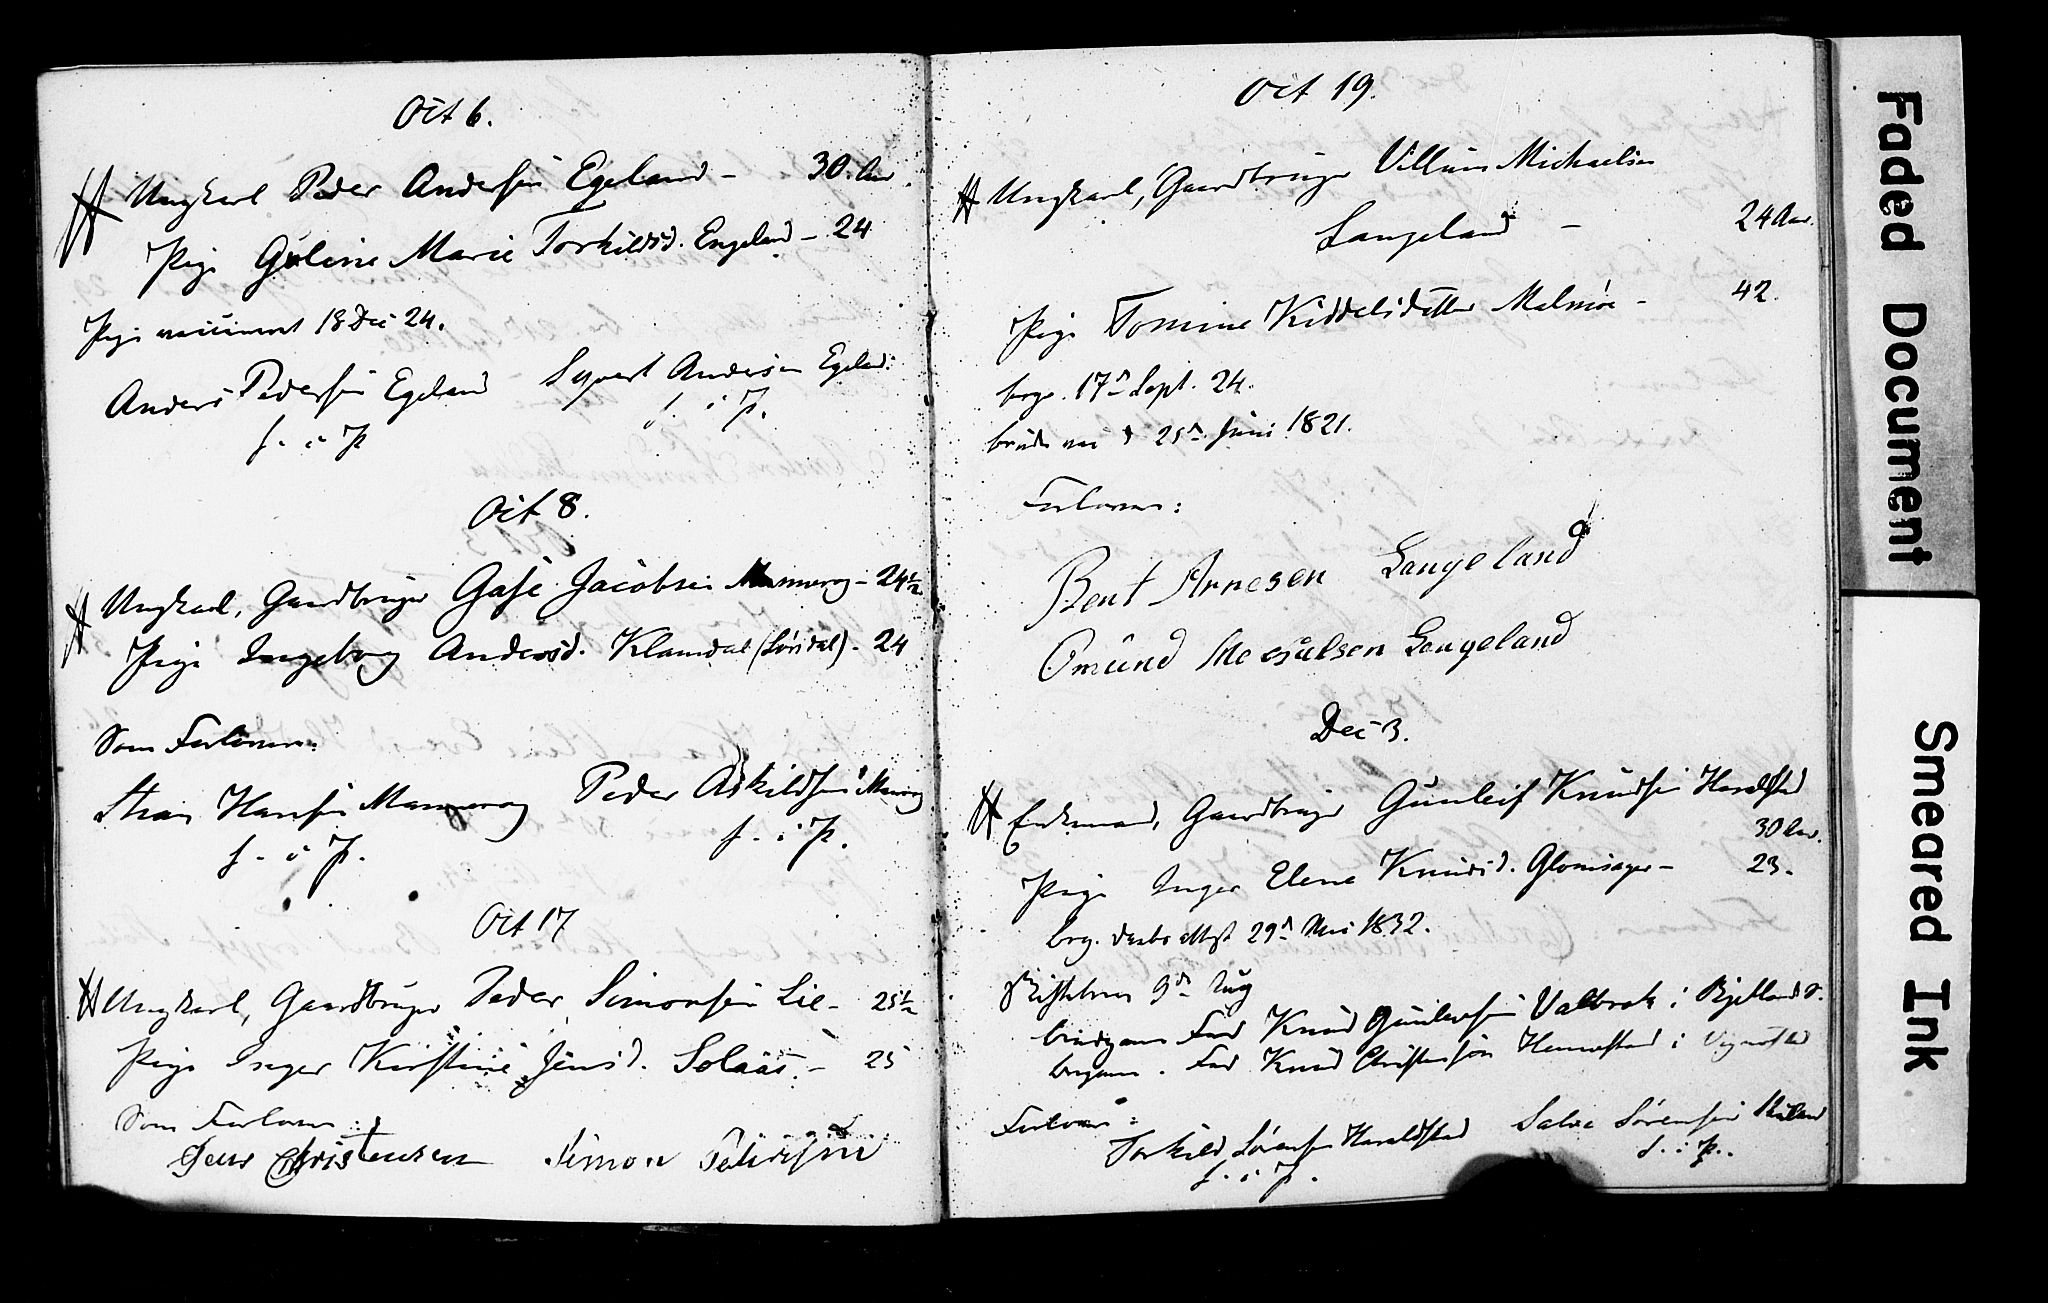 Oct 6.
Ungkarl Peder Andersen Egeland – 30 Aar
Pige Guline Marie Torkildsd. Engeland – 24
Pige vaccineret 18 Dec 24.
Anders Pedersen Egeland Syvert Andersen Egeland
f. i P. f. i P.
Oct 8.
Ungkarl, Gaardbruger Jacobsen – 24½
Pige Ingeborg Andersd. Klamdal (Lørdal) – 24
Som Forlovere:
Hansen Peder Askildsen
f. i P. f. i P.
Oct 17
Ungkarl, Gaardbruger Peder Simonsen Lie – 25½
Pige Inger Kirstine Jensd. Solaas – 25
Som Forlovere:
Jens Christensen Simon Pedersen
Oct 19.
Ungkarl, Gaardbruger Villum Michaelsen
Langeland – 24 Aar.
Pige Tomine Kiddelsdatter Malmøe – 42.
17de Sept. 24.
d 25de Juni 1821.
Forlovere:
Bent Arnesen Langeland
Omund Langeland
Dec 3.
Enkemand, Gaardbruger Gunleif Knudsen Haraldstad
30 Aar.
Pige Inger Elene Knudsd. Glomsager – 23.
29de Mai 1832.
Skifteberes 9de Aug
Knud Gunleifsen Valbrok i Bjelland S.
Knud Christensen i
Forlovere:
Torkild Sørensen Haraldstad Salve Sørensen
f. i P. f. i P.
Faded Document
Smeared Ink